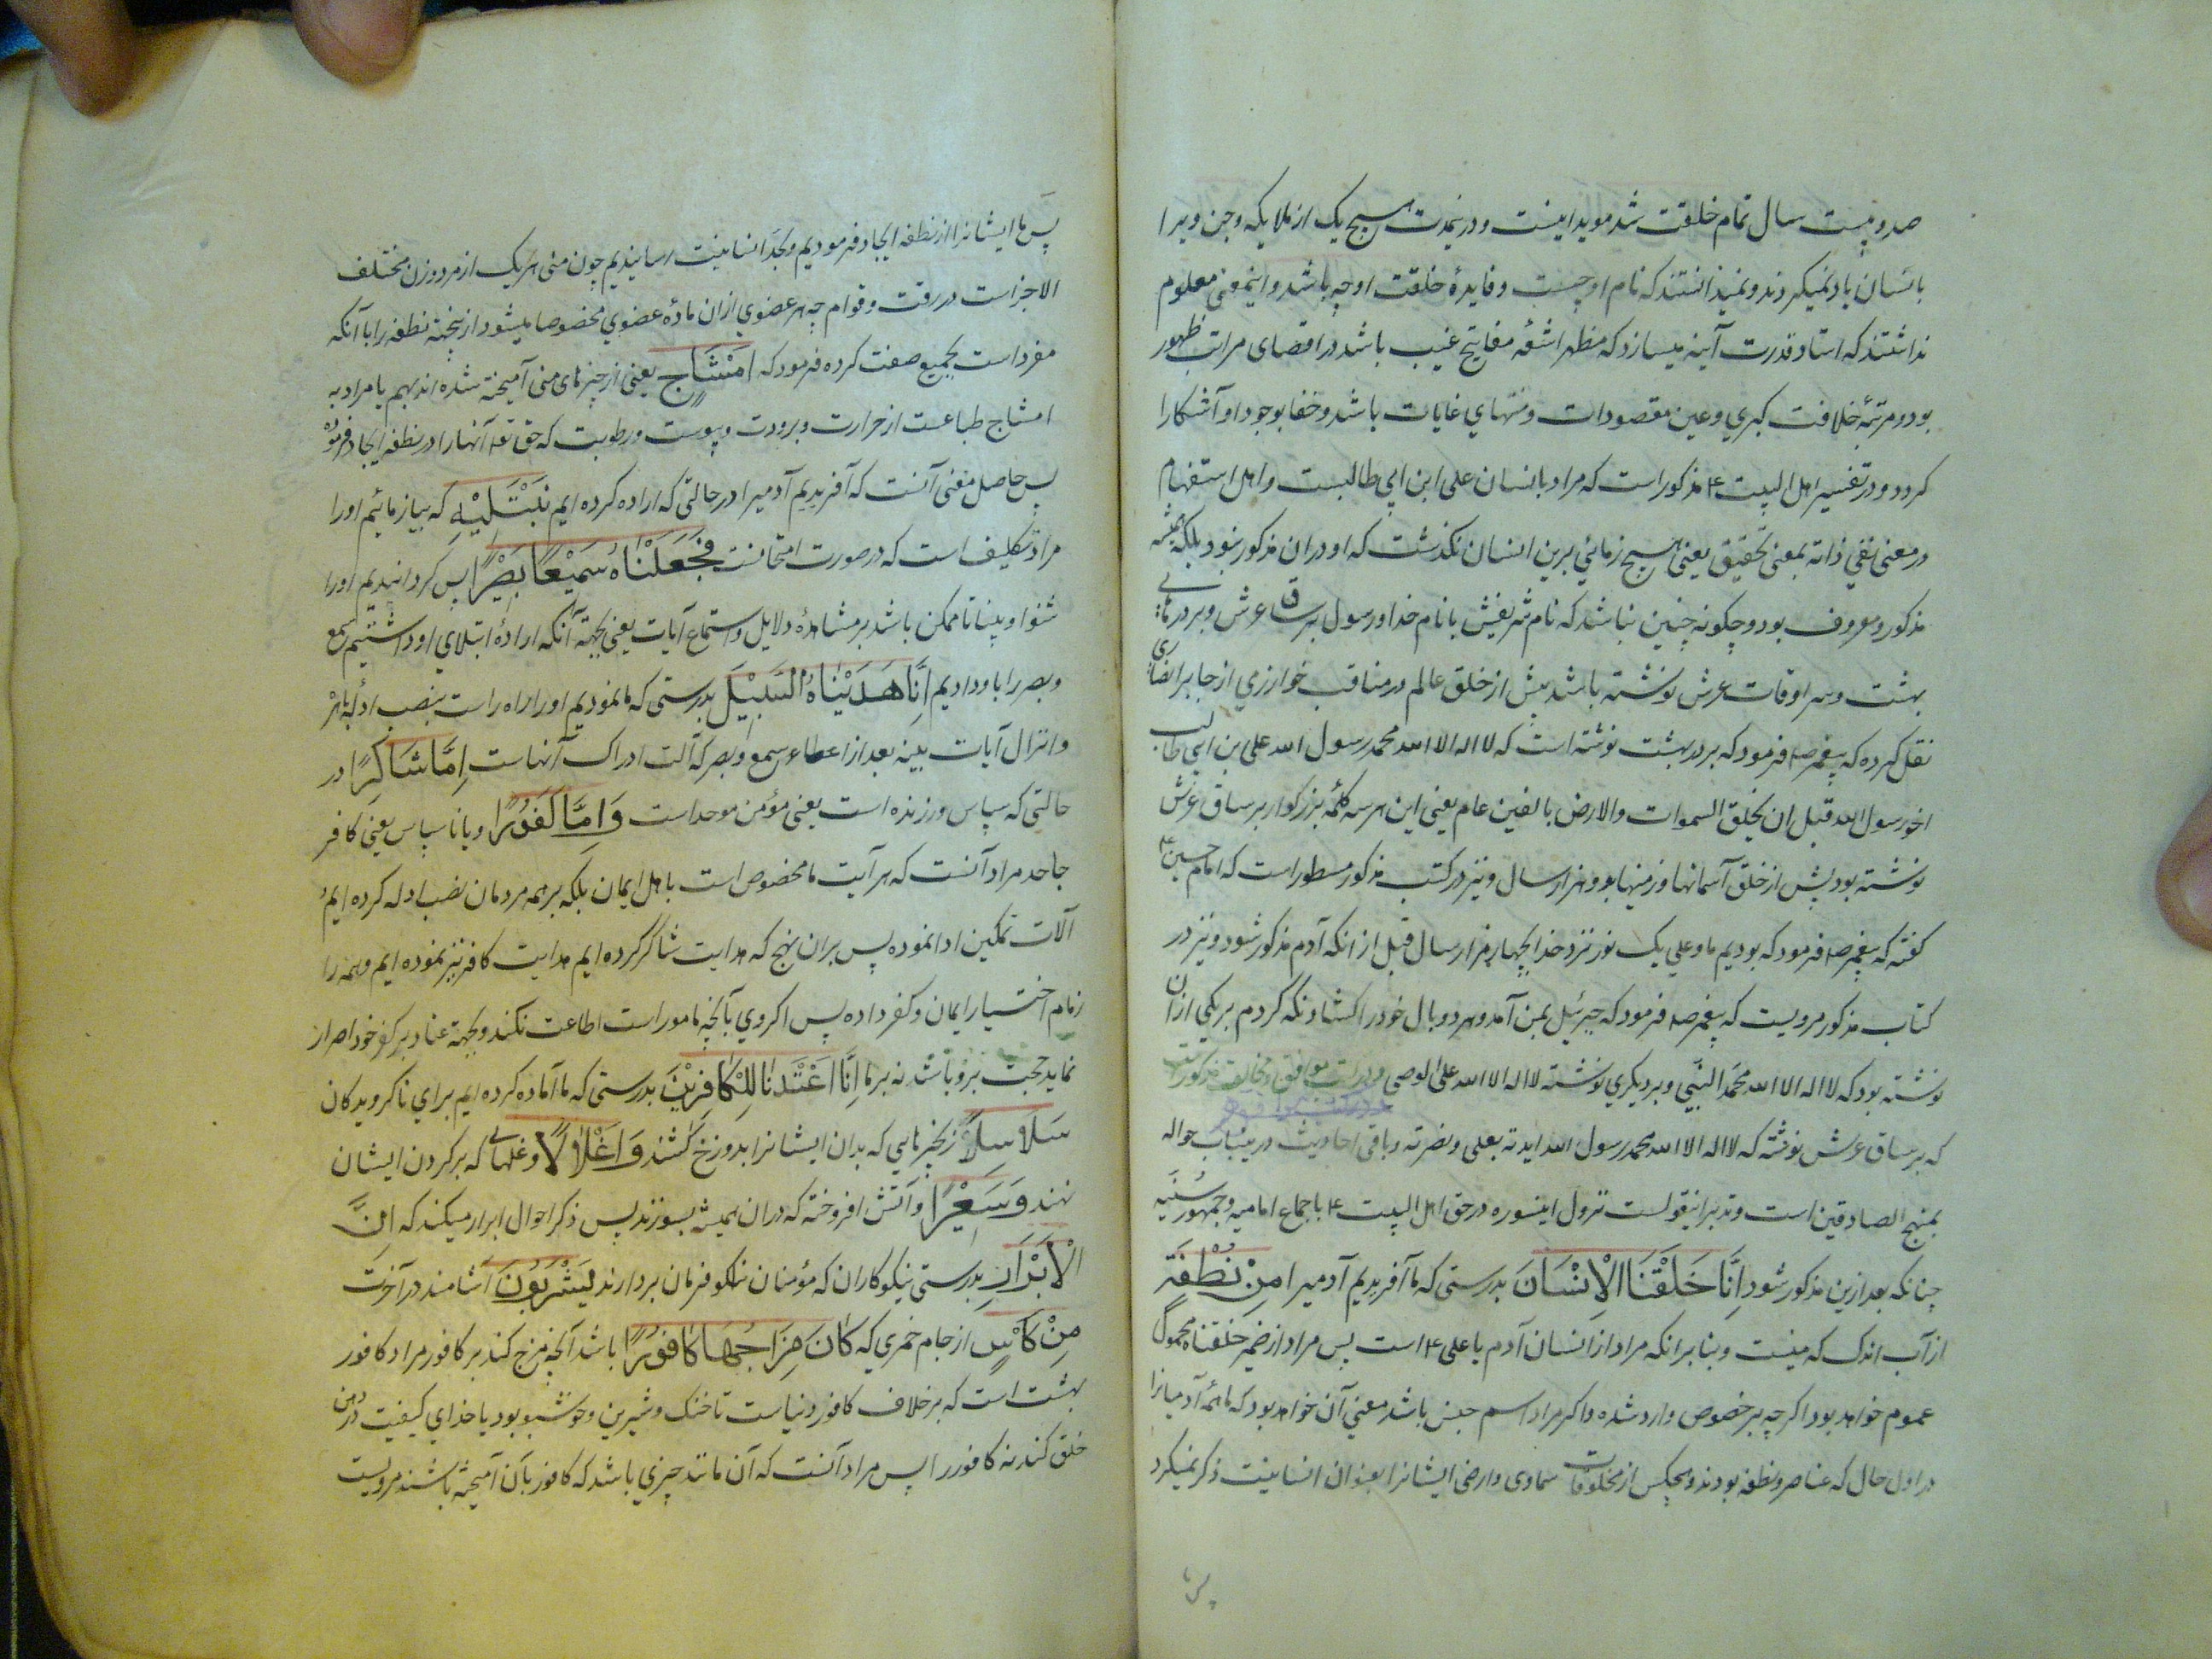 صد و بیست سال تمام خلقت شد موید اینست و درین مدت هیچ یک از ملایکه و جن ویرا
بانسان یاد نمیکردند و نمیدانستند که نام او چیست و فایدهٔ خلقت او چه باشد و اینمعنی معلوم
نداشتند که استاد قدرت آینه میسازد که مظهر اشعه مفاتیح غیب باشد در اقصای مراتب ظهور
بود و مرتبهٔ خلافت کبری و عین مقصودات و منتهای غایات باشد و خفا بوجود او آشکارا
کردد و در تفسیر اهل البیت ع مذکور است که مراد بانسان علی ابن ابی طالبست و اهل استفهام
در معنی نفی ذاته بمعنی تحقیق یعنی هیچ زمانی برین انسان نکذشت که او در ان مذکور نبود بلکه همیشه
مذکور و معروف بود و چکونه چنین نباشد که نام شریفش با نام خدا و رسول بر ساق عرش و بر درهای
بهشت و سراوقات عرش نوشته باشد پیش از خلق عالم در مناقب خوارزمی از جابر انصاری
نقل کرده که پیغمبر ص فرمود که بر در بهشت نوشته است که لا اله الا الله محمد رسول الله علی بن ابی طالب
اخو رسول الله قبل ان یخلق السموات والارض بالفین عام یعنی این هر سه کلمه بزرکوار بر ساق عرش
نوشته بود پیش از خلق آسمانها و زمینها بدو هزار سال و نیز در کتب مذکور مسطور است که امام حسین ع
کفته که پیغمبر ص فرمود که بودیم ما و علی یک نور نزد خدا بچهار هزار سال قبل از انکه آدم مذکور شود و نیز در
کتاب مذکور مرویست که پیغمبر ص فرمود که جبرئیل بمن آمد و هر دو بال خود را کشاد نکه کردم بر یکی از ان
نوشته بود که لا اله الا الله محمد النبی و بر دیکری نوشته لا اله الا الله علی الوصی
که بر ساق عرش نوشته که لا اله الا الله محمد رسول الله ایدته بعلی و نصرته و باقی احادیث درینباب حواله
بمنهج الصادقین است و تدبر اینقولست نزول اینسوره در حق اهل البیت ع باجماع امامیه و جمهور سنیه
چنانکه بعد ازین مذکور شود اِنَّا خَلَقْنَا الْاِنْسَانَ بدرستی که ما آفریدیم آدمیرا مِنْ نُطْفَةٍ
از آب اندک که منیست و بنا برانکه مراد از انسان آدم یا علی ع است پس مراد از ضمیر خلقناه محمول
عموم خواهد بود اکرچه بر خصوص وارد شده و اکر مراد اسم جنس باشد معنی آن خواهد بود که ما همه آدمیانرا
در اول حال که عناصر و نطفه بودند و هیچکس از مخلوقات سماوی و ارضی ایشانرا بعنوان انسانیت ذکر نمیکرد
پس ما
پس ما ایشانرا از نطفه ایجاد فرمودیم و بحد انسانیت رسانیدیم چون منی هر یک از مرد و زن مختلف
الاجزاست در رقت و قوام چه هر عضوی از ان مادهٔ عضوی مخصوصا میشود ازینجهة نطفه را با آنکه
مفرد است بجمیع صفت کرده فرمود که اَمْشَاجٍ یعنی از چیزهای منی آمیخته شده اند بهم یا مراد به
امشاج طباعست از حرارت و برودت و یبوست و رطوبت که حق تع آنها را در نطفه ایجاد فرموده
پس حاصل معنی آنست که آفریدیم آدمیرا در حالتی که اراده کرده ایم نَبْتَلِیْهِ که بیازمائیم او را
مراد تکلیف است که در صورت امتحانست فَجَعَلْنَاهُ سَمِیْعًا بَصِیْرًا پس کردانیدیم او را
شنوا و بینا تا ممکن باشد بر مشاهدهٔ دلایل و استماع آیات یعنی بجهة آنکه ارادهٔ ابتلای او داشتیم سمع
و بصر را باو دادیم اِنَّا هَدَیْنَاهُ السَّبِیْلَ بدرستی که ما نمودیم او را راه راست بنصب ادله باهره
و انزال آیات بینه بعد از اعطاء سمع و بصر که آلت ادراک آنهاست اِمَّا شَاکِرًا در
حالتی که سپاس ورزنده است یعنی مؤمن موحد است وَ اِمَّا کَفُوْرًا و یا ناسپاس یعنی کافر
جاحد مراد آنست که هر آیت ما مخصوص است باهل ایمان بلکه بر همه مردمان نصب ادله کرده ایم
آلات تمکین ادا نموده پس بران نهج که هدایت شاکر کرده ایم هدایت کافر نیز نموده ایم و همه را
زمام اختیار ایمان و کفر داده پس اکر وی بآنچه مامور است اطاعت نکند و بجهة عناد بر کفر خود اصرار
نماید حجت برو باشد نه بر ما اِنَّا اَعْتَدْنَا لِلْکَافِرِیْنَ بدرستی که ما آماده کرده ایم برای ناکرویدکان
سَلَاسِلَاً زنجیرهایی که بدان ایشانرا بدوزخ کشند وَ اَغْلَالًا و غلهایی که بر کردن ایشان
نهند وَ سَعِیْرًا و آتش افروخته که دران همیشه بسوزند پس ذکر احوال ابرار میکند که اِنَّ
الْاَبْرَارَ بدرستی نیکوکاران که مؤمنان نیکو فرمان بردارند لَیَشْرَبُوْنَ آشامند در آخرت
مِنْ کَاْسٍ از جام خمری که کَانَ مِزَاجُهَا کَافُوْرًا باشد آنچه مزج کند بر کافور مراد کافور
بهشت است که بر خلاف کافور دنیاست تا خنک و شیرین و خوشبو بود یا خدای کیفیت در من
خلق کند نه کافور را پس مراد آنست که آن مانند چیزی باشد که کافور بآن آمیخته باشند مرویست